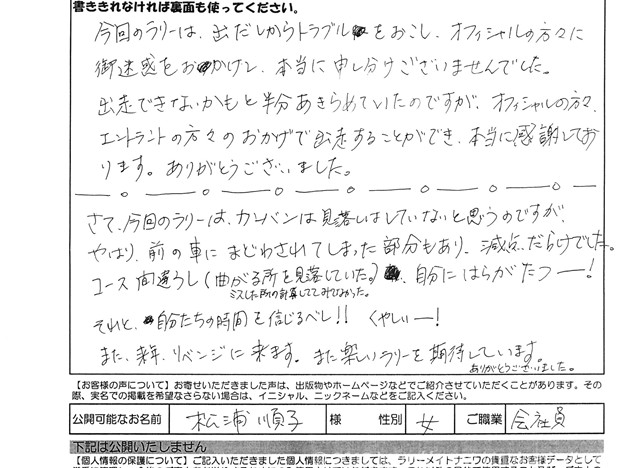 書ききれなければ裏面も使ってください。
今回のラリーは、出だしからトラブルをおこし、オフィシャルの方々に
御迷惑をおかけし、本当に申し分けございませんでした。
出走できないかもと半分あきらめていたのですが、オフィシャルの方々、
エントラントの方々のおかげで出走することができ、本当に感謝してお
ります。ありがとうございました。
さて、今回のラリーは、カンバンは見落しはしていないと思うのですが、
やはり、前の車にまどわされてしまった部分もあり、減点だらけでした。
コース間違うし(曲がる所を見落していた。)、自分にはらがたつー!
ミスした所の計算しててみてなかった。
それと、自分たちの時間を信じるべし!! くやしいー!
また、来年、リベンジに来ます。また楽しいラリーを期待しています。
ありがとうございました。
【お客様の声について】お寄せいただきました声は、出版物やホームページなどでご紹介させていただくことがあります。その
際、実名での掲載を希望なさらない場合は、イニシャル、ニックネームなどをご記入ください。
公開可能なお名前 松浦 順子 様 性別 女 ご職業 会社員
下記は公開いたしません
【個人情報の保護について】ご記入いただきました個人情報につきましては、ラリーメイトナニワの貴重なお客様データとして